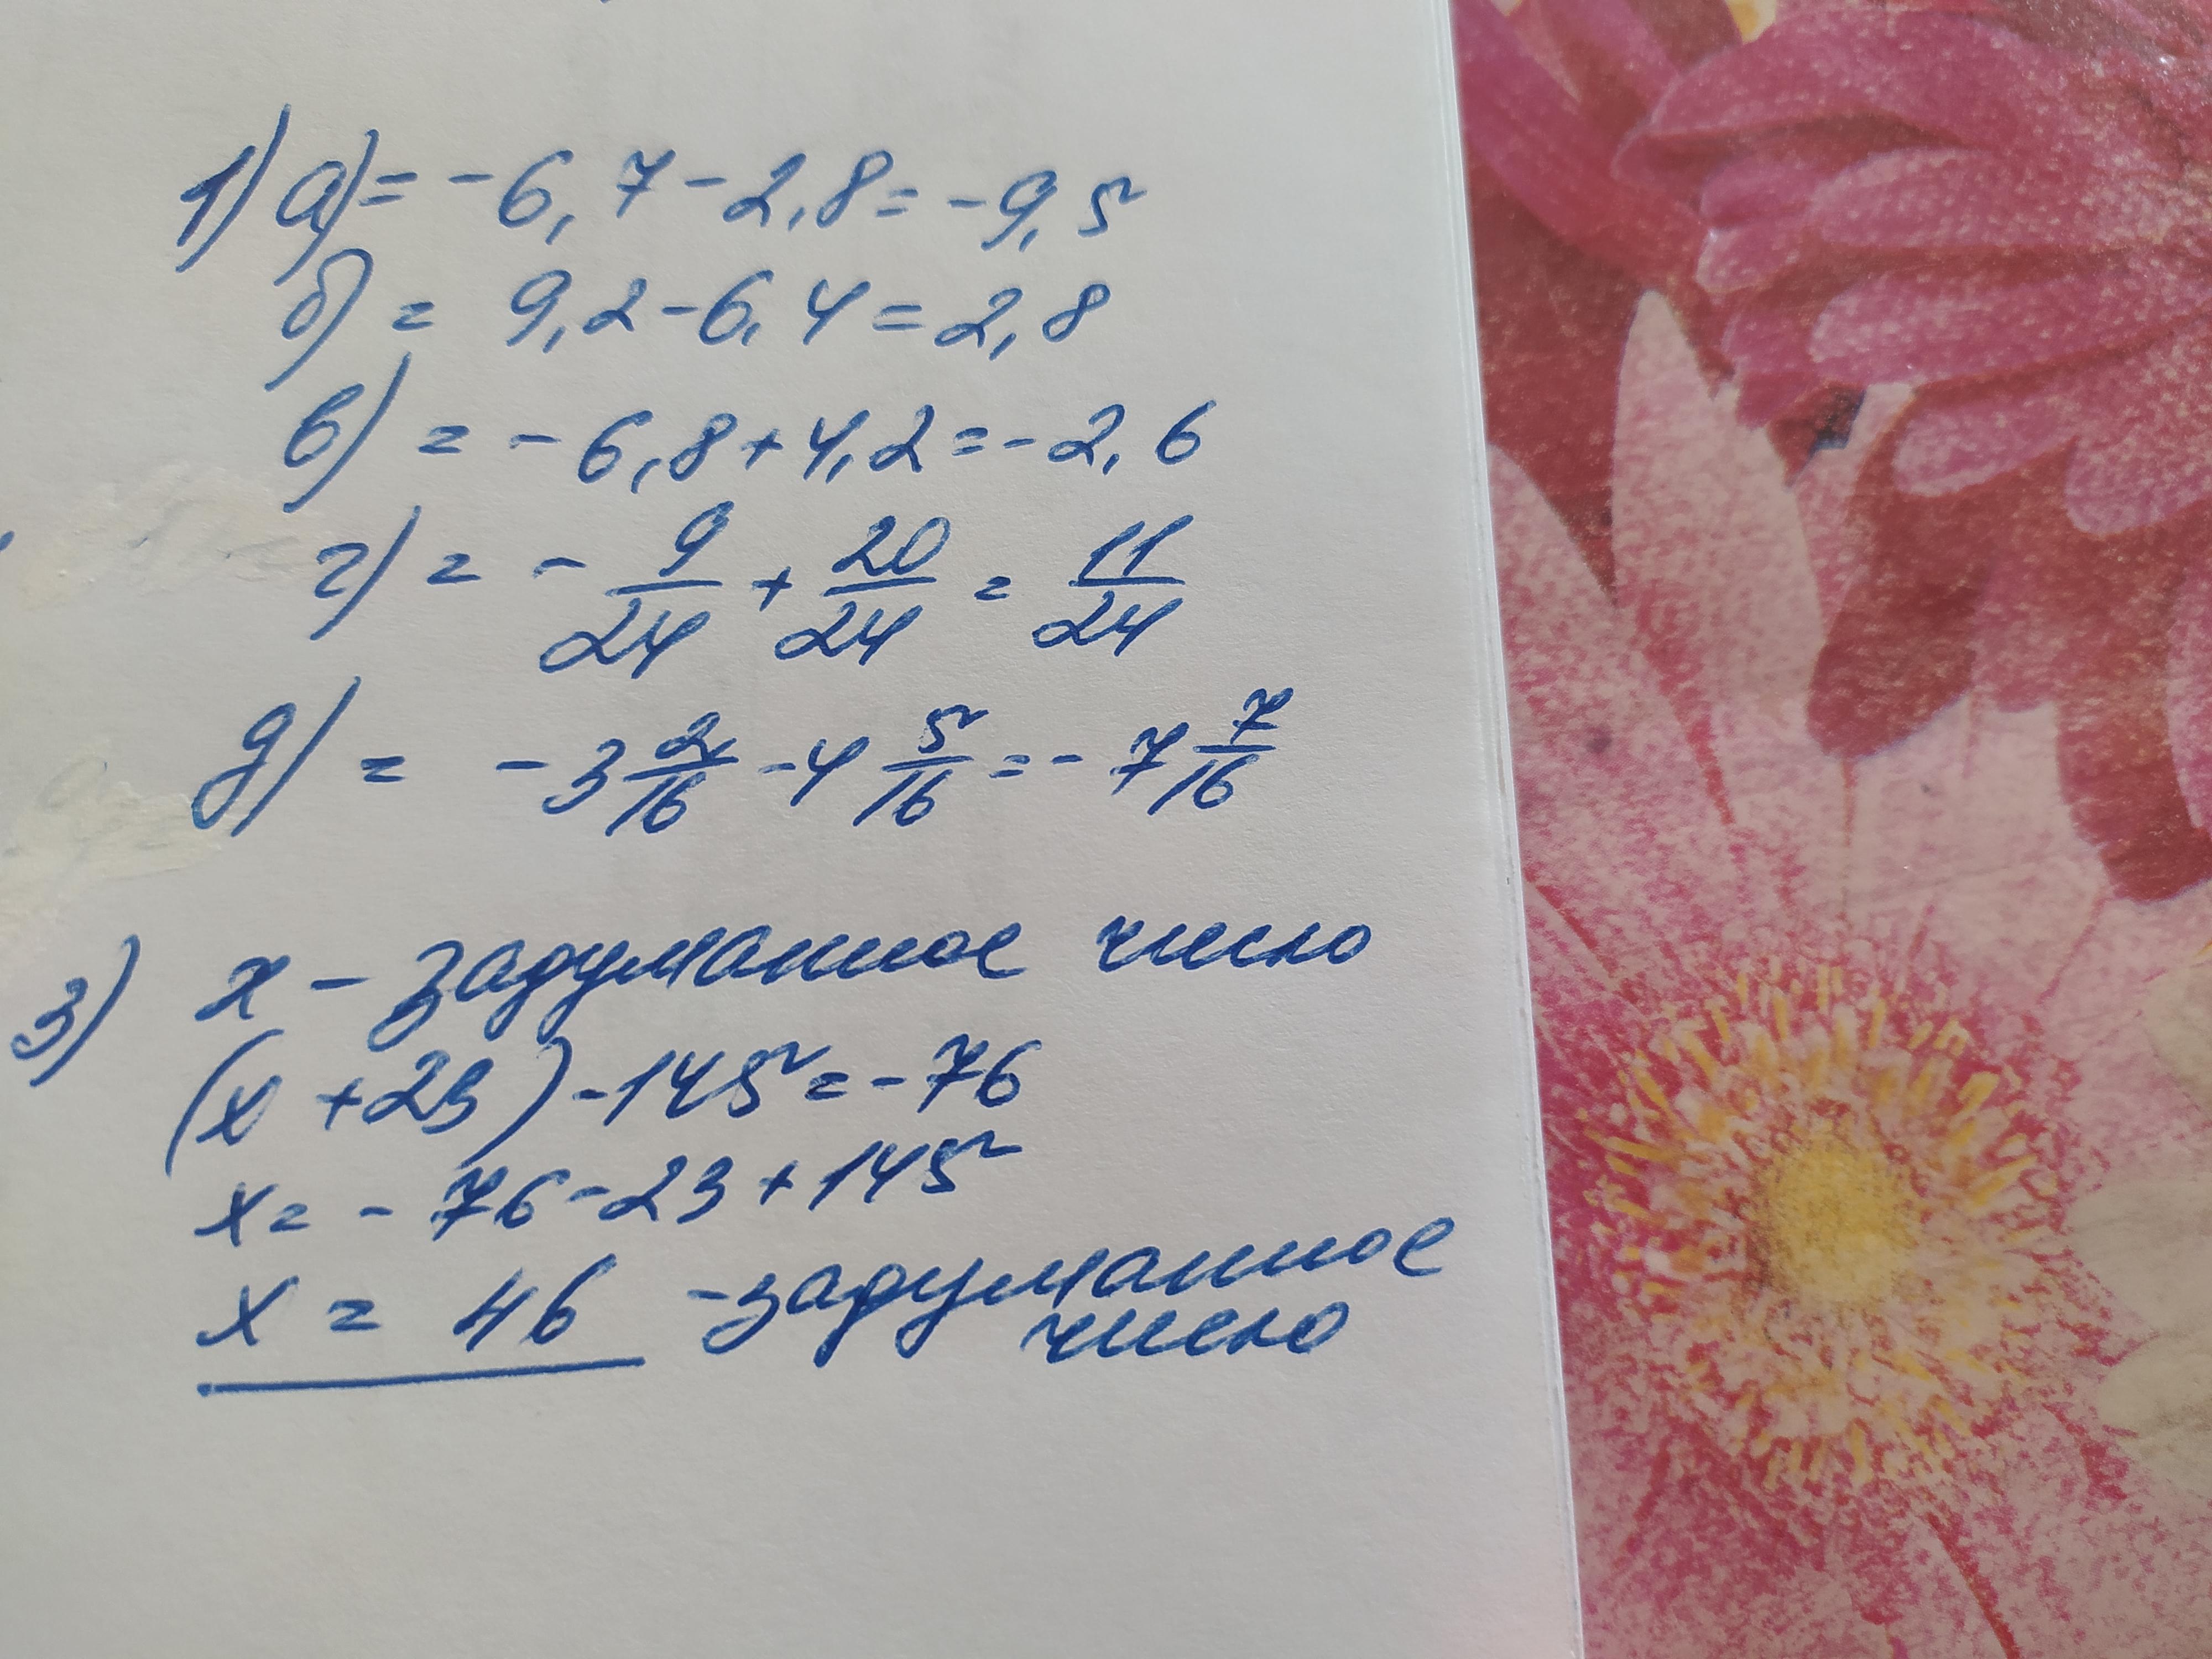 1) а) = - 6,7 - 2,8 = - 9,5
б) = 9,2 - 6,4 = 2,8
в) = - 6,8 + 4,2 = - 2,6
г) = - 9/24 + 20/24 = 11/24
д) = - 3 2/16 - 4 5/16 = - 7 7/16
3) х - задуманное число
(х + 23) - 145 = - 76
х = - 76 - 23 + 145
х = 46 - задуманное
число